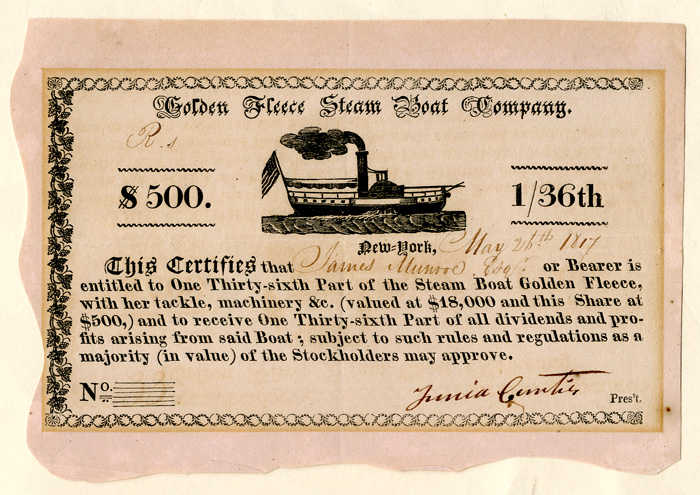 Golden Fleece Steam Boat Company.
R.s
$ 500.
1/36th
New-York, May 26th 1817
This Certifies that James Munroe Esqr. or Bearer is
entitled to One Thirty-sixth Part of the Steam Boat Golden Fleece,
with her tackle, machinery &c. (valued at $18,000 and this Share at
$500,) and to receive One Thirty-sixth Part of all dividends and pro-
fits arising from said Boat; subject to such rules and regulations as a
majority (in value) of the Stockholders may approve.
No.
Junia Curtis
Pres't.